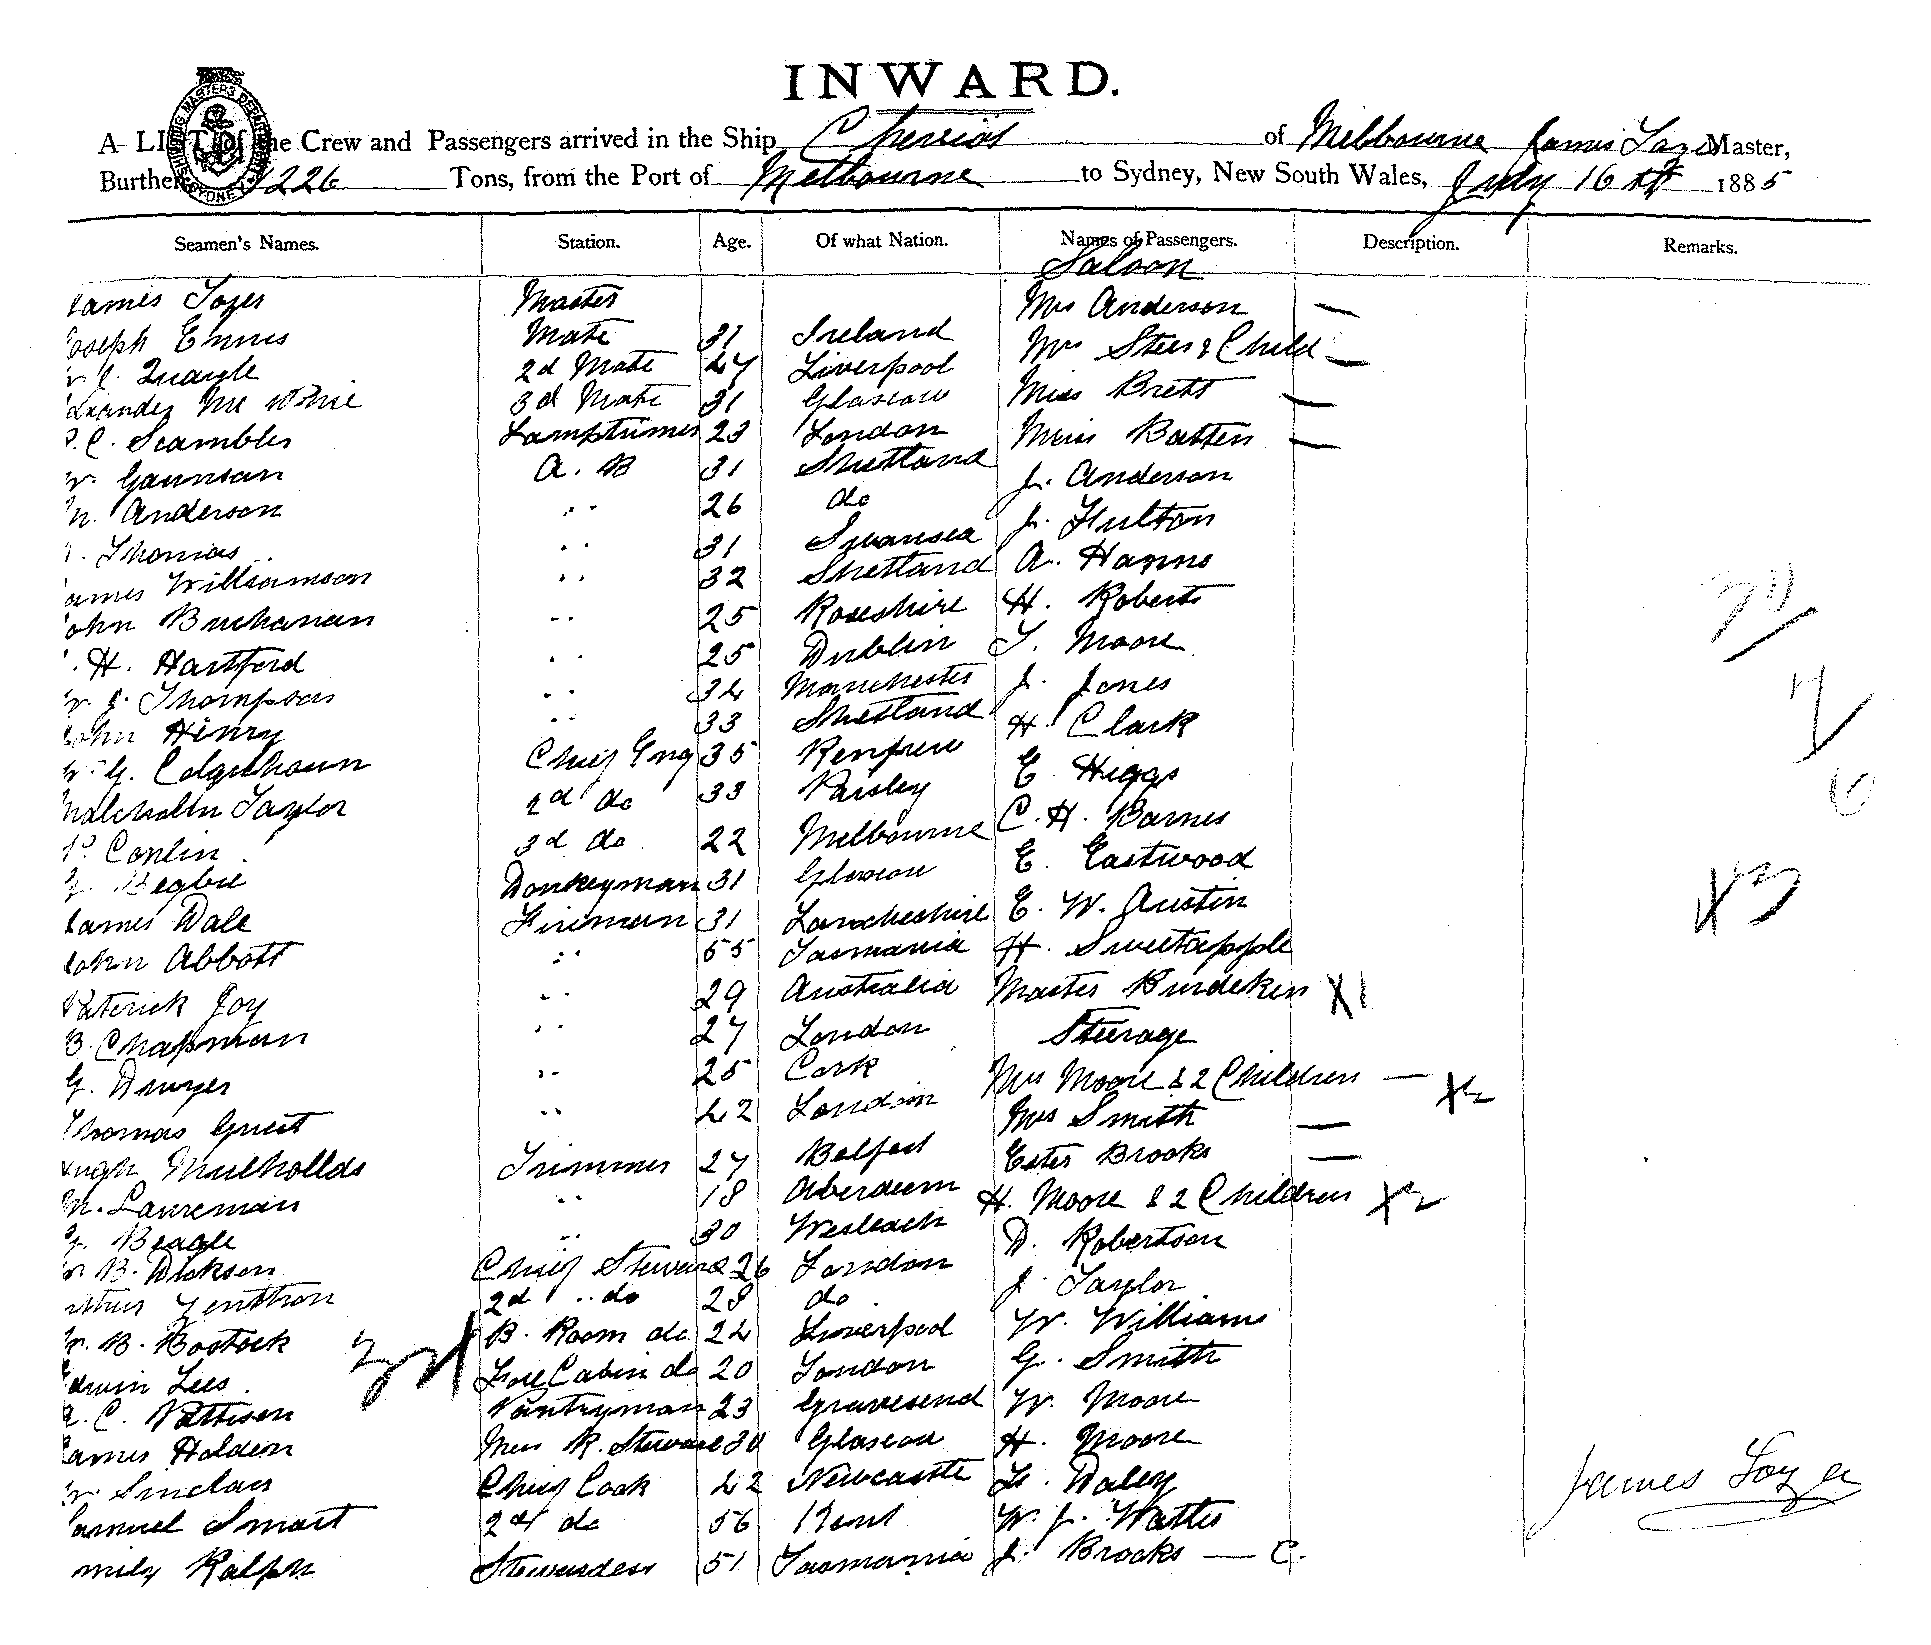 INWARD.
A LIST of the Crew and Passengers arrived in the Ship Cheviot of Melbourne James Tozer Master,
Burthen 1226 Tons, from the Port of Melbourne to Sydney, New South Wales, July 16th 1885
Seamen's Names. Station. Age. Of what Nation. Names of Passengers. Description. Remarks.
Saloon
James Tozer Master Mrs Anderson —
Joseph Ennis Mate 31 Ireland Mrs Steer & Child —
Quayle 2d Mate 27 Liverpool Miss Brett —
3d Mate 31 Glasgow Miss Batten —
C. Scambler Lamptrimer 23 London J. Anderson
Gaunson A. B 31 Shetland J. Fulton
Anderson " 26 do A. Hanns
Thomas " 31 Swansea H. Roberts
James Williamson " 32 Shetland T. Moore
John Buchanan " 25 Rosshire J. Jones
H. Hartford " 25 Dublin H. Clark
J. Thompson " 34 Manchester E. Higgs
John Henry " 33 Shetland C. H. Barnes
G. Colquhoun Chief Eng 35 Renfrew E. Eastwood
Malcholm Taylor 2d do 33 Paisley E. W. Austin
P. Conlin 3d do 22 Melbourne H. Sweetapple
Begbie Donkeyman 31 Glasgow Master Burdekin X1
James Dale Fireman 31 Lancheshire Steerage
John Abbott " 55 Tasmania Mrs Moore & 2 Children — X2
Paterick Joy " 29 Australia Mrs Smith —
B. Chapman " 27 London Ester Brooks —
G. Dwyer " 25 Cork H. Moore & 2 Children X2
Thomas Guest " 42 London D. Robertson
Hugh Mulhollds Trimmer 27 Belfast J. Taylor
M. Laureman " 18 Aberdeen W. Williams
Beagle " 30 Wesleach G. Smith
B. Dickson Chief Steward 26 London W. Moore
2d " do 28 do H. Moore
B. Bostock B. Room do 24 Liverpool Daley
Edwin Lees Fore Cabin do 20 London W. J. Watter
C. Pattison Pantryman 23 Gravesend J. Brooks — C.
James Holden Mess R. Steward 30 Glasgow
Sinclair Chief Cook 42 Newcastle
Samuel Smart 2d do 56 Kent
Emily Ralph Stewardess 51 Tasmania
X3
James Tozer